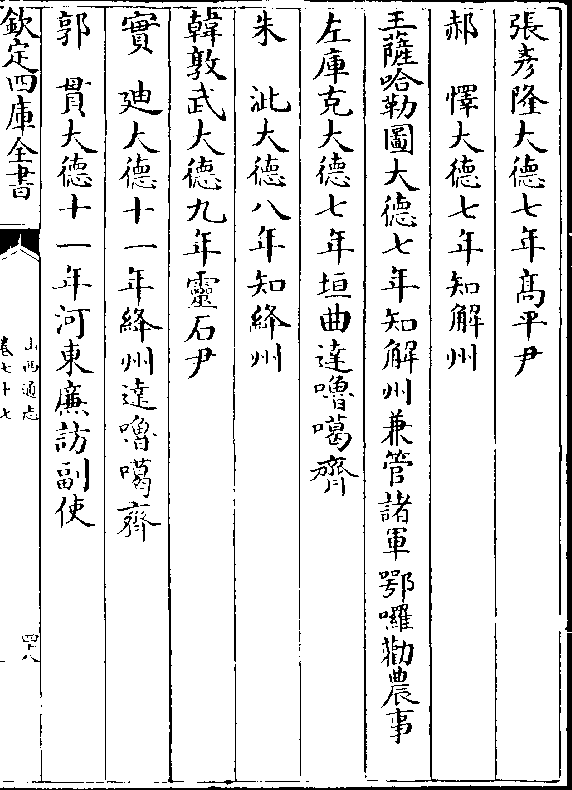 張彥隆大德七年高平尹
郝　懌大德七年知解州
王薩哈勒圖大德七年知解州兼管諸軍鄂囉勸農事
左庫克大德七年垣曲達嚕噶齊
朱　泚大德八年知絳州
韓敦武大德九年靈石尹
實　廸大德十一年絳州達嚕噶齊
郭　貫大德十一年河東廉訪副使
欽定四庫全書
山西通志
卷七十七
四十八